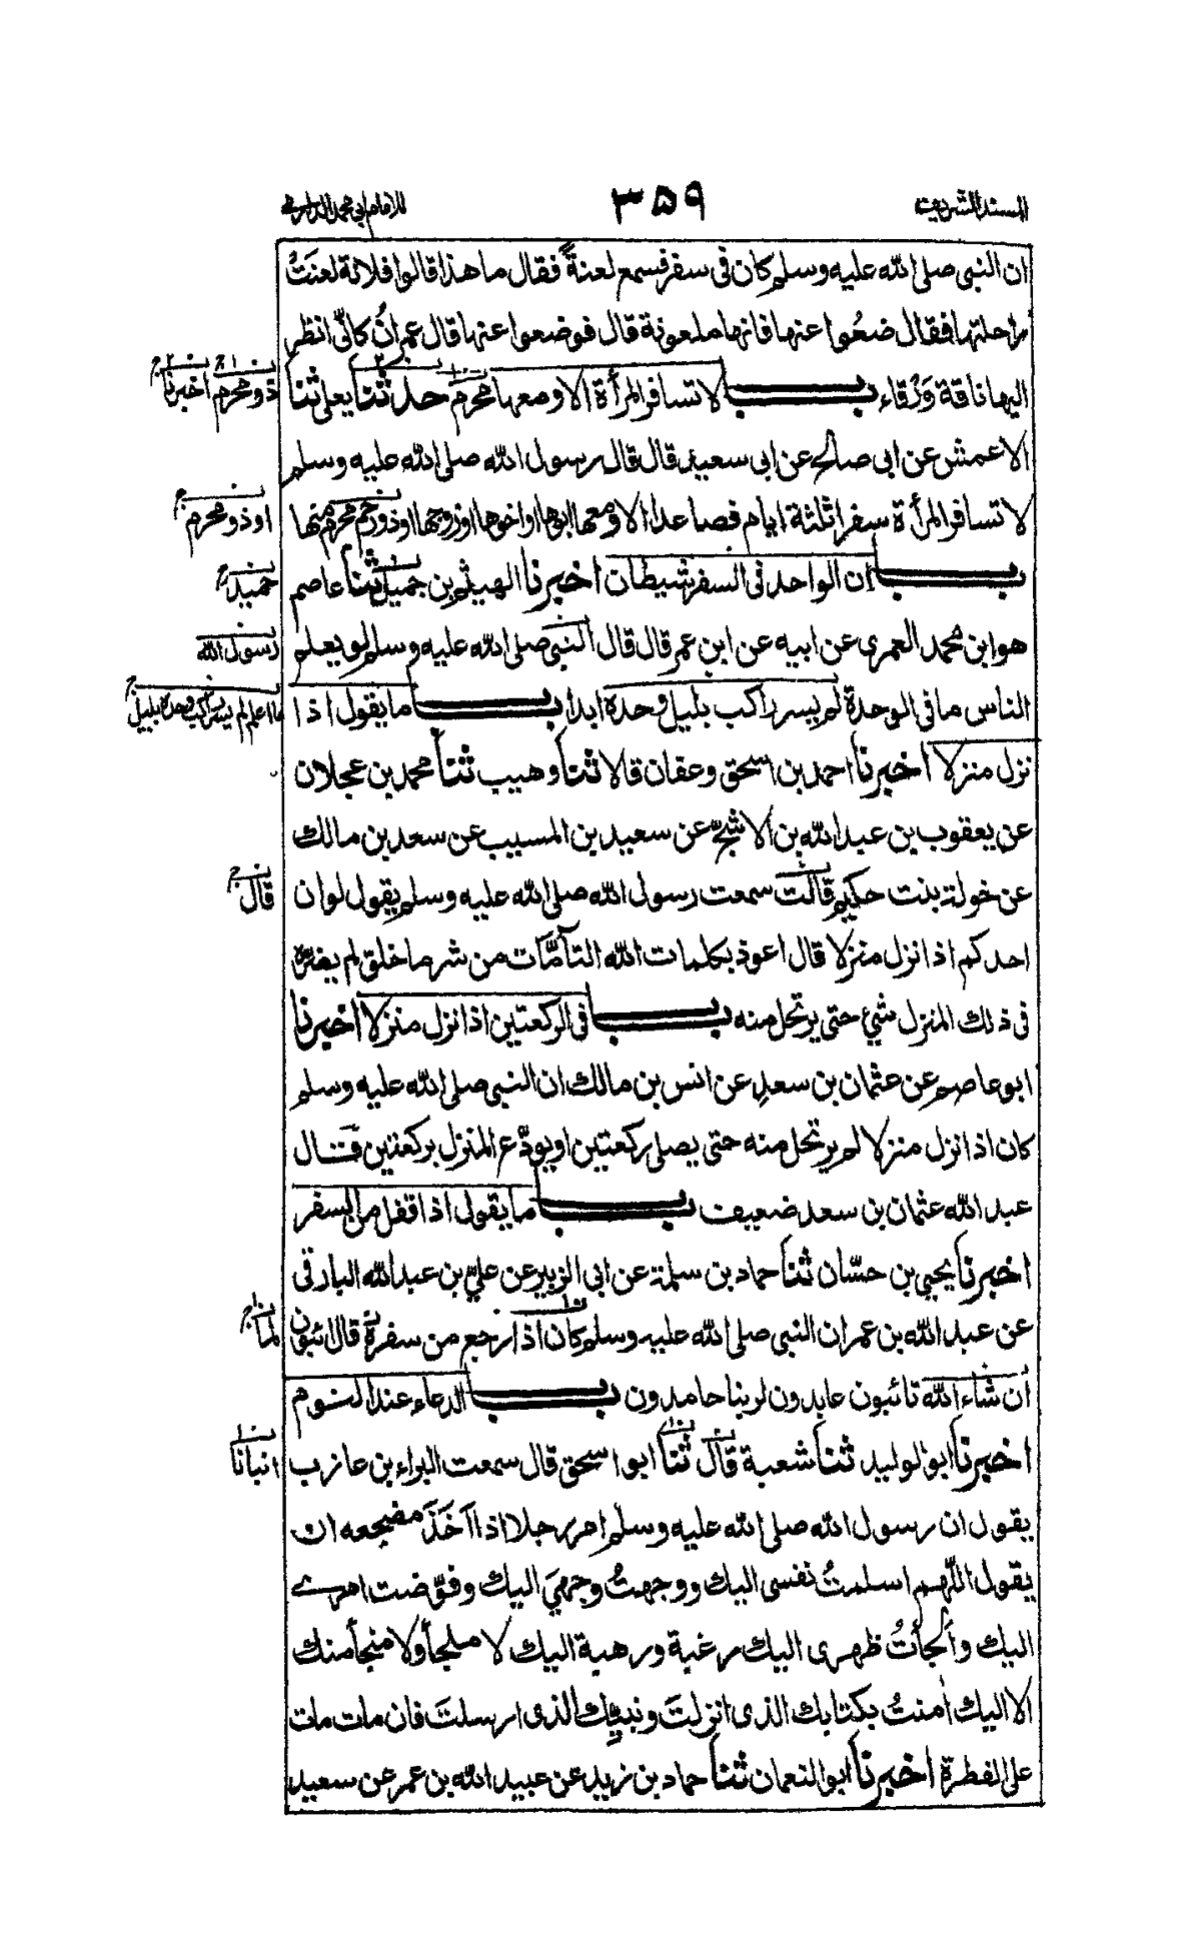 المسند الشريف ٣٥٩ للامام ابي محمد الدارمي
ان النبي صلى الله عليه وسلم كان في سفر فسمع لعنةً فقال ما هذا قالوا فلانة لعنَتْ
راحلتها فقال ضعُوا عنها فانها ملعونة قال فوضعوا عنها قال عمرانُ كانّي انظر
اليها ناقة وَرْقاء باب لا تسافر المرأة الا ومعها محرم حدثنا يعلى ثنا
ذو محرم اخبرنا
الاعمش عن ابي صالح عن ابي سعيد قال قال رسول الله صلى الله عليه وسلم
لا تسافر المرأة سفرا ثلثة ايام فصاعدا الا ومعها ابوها او اخوها او زوجها او ذو رحم محرم منها
او ذو محرم
باب ان الواحد في السفر شيطان اخبرنا الهيثم بن جميل ثنا عاصم
حميد
هو ابن محمد العمري عن ابيه عن ابن عمر قال قال النبي صلى الله عليه وسلم لو يعلم
رسول الله
الناس ما في الوحدة لم يسر راكب بليل وحده ابدا باب ما يقول اذا
ما اعلم لم يسر راكب وحده بليل
نزل منزلا اخبرنا احمد بن اسحق وعفان قالا ثنا وهيب ثنا محمد بن عجلان
عن يعقوب بن عبد الله بن الاشجّ عن سعيد بن المسيب عن سعد بن مالك
عن خولة بنت حكيم قالت سمعت رسول الله صلى الله عليه وسلم يقول لو ان
قال
احدكم اذا نزل منزلا قال اعوذ بكلمات الله التآمّات من شر ما خلق لم يضرّه
في ذلك المنزل شيء حتى يرتحل منه باب في الركعتين اذا نزل منزلا اخبرنا
ابو عاصم عن عثمان بن سعدٍ عن انس بن مالك ان النبي صلى الله عليه وسلم
كان اذا نزل منزلا لم يرتحل منه حتى يصلي ركعتين او يودّع المنزل بركعتين قال
عبد الله عثمان بن سعد ضعيف باب ما يقول اذا قفل من السفر
اخبرنا يحيى بن حسّان ثنا حماد بن سلمة عن ابي الزبير عن عليّ بن عبد الله البارقي
عن عبد الله بن عمر ان النبي صلى الله عليه وسلم كان اذا رجع من سفره قال ائبون
لما
ان شاء الله تائبون عابدون لربنا حامدون باب الدعاء عند النوم
اخبرنا ابو الوليد ثنا شعبة قال ثنا ابو اسحق قال سمعت البراء بن عازب
انبانا
يقول ان رسول الله صلى الله عليه وسلم امر رجلا اذا اَخَذَ مضجعه ان
يقول اللّهم اسلمتُ نفسي اليك ووجهتُ وجهيَ اليك وفوّضت امري
اليك وألجأتُ ظهري اليك رغبة ورهبة اليك لا ملجأ ولا منجأ منك
الا اليك اٰمنتُ بكتابك الذي انزلتَ ونبيّك الذي ارسلتَ فان مات مات
على الفطرة اخبرنا ابو النعمان ثنا حماد بن زيد عن عبيد الله بن عمر عن سعيد